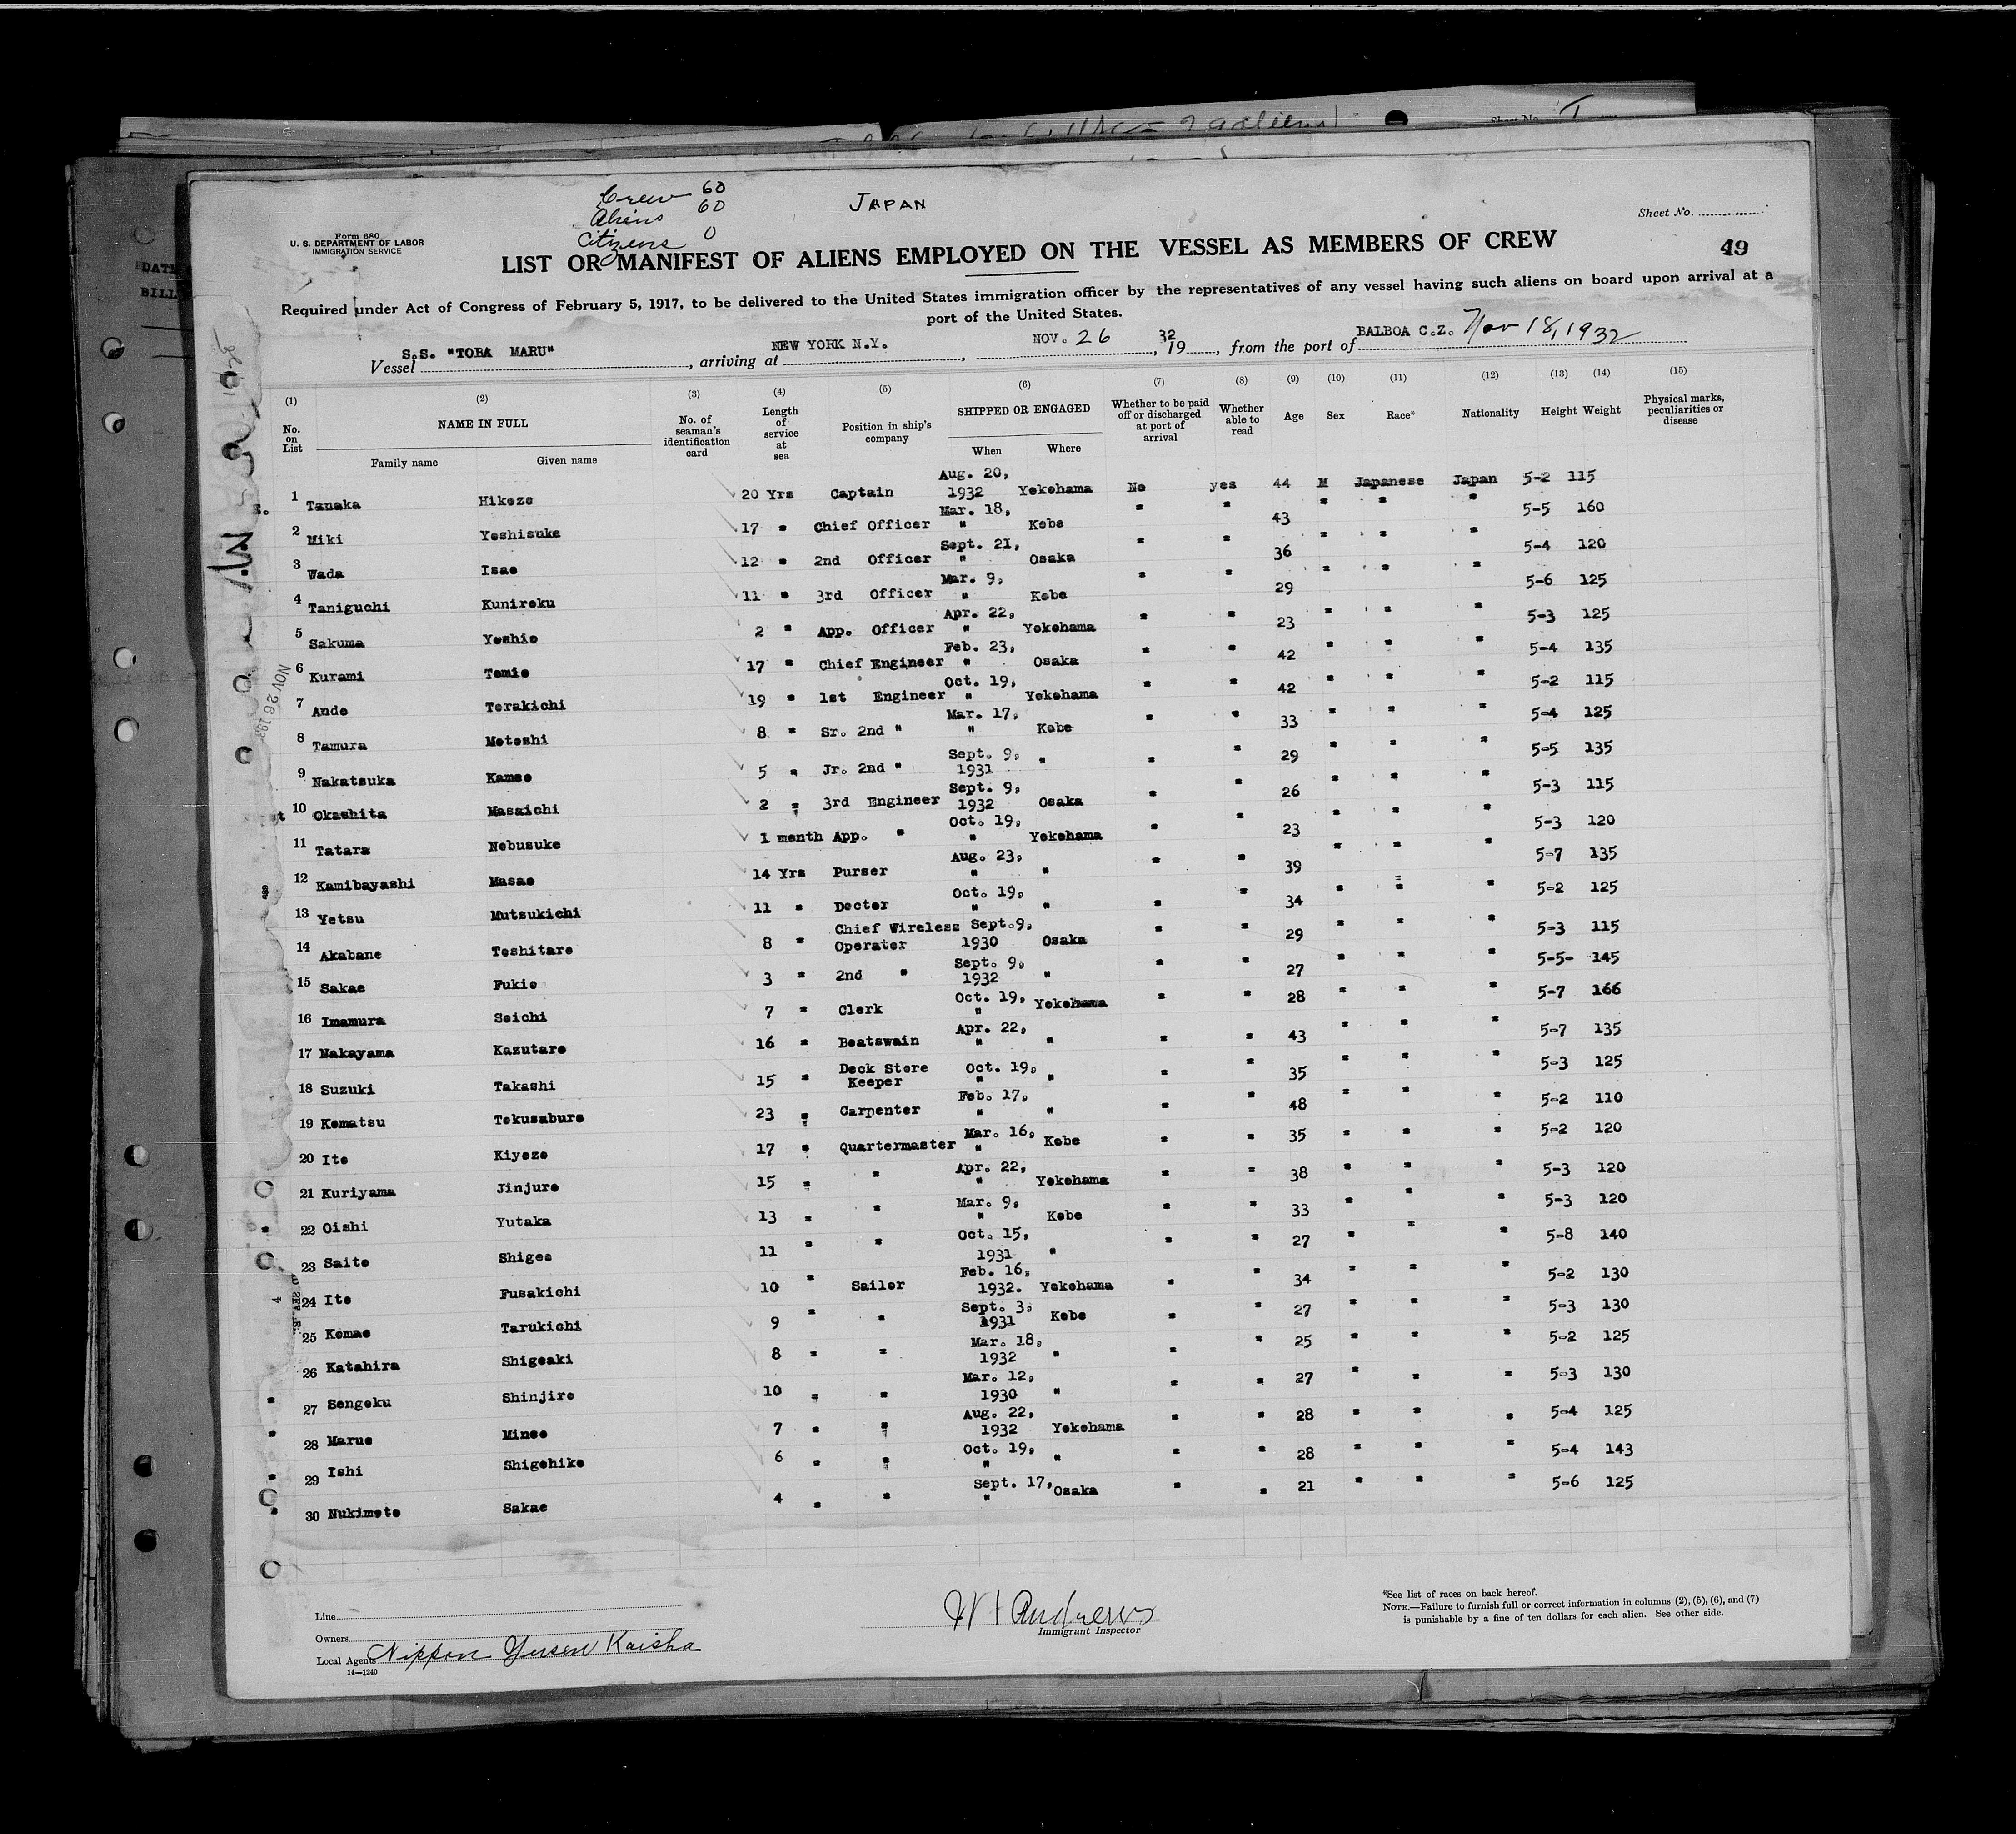 Sheet No. I
Crew 60
Aliens 60
Citizens 0
JAPAN
Sheet No.
Form 680
U. S. DEPARTMENT OF LABOR
IMMIGRATION SERVICE
49
LIST OR MANIFEST OF ALIENS EMPLOYED ON THE VESSEL AS MEMBERS OF CREW
Required under Act of Congress of February 5, 1917, to be delivered to the United States immigration officer by the representatives of any vessel having such aliens on board upon arrival at a
port of the United States.
Vessel S.S. "TOBA MARU", arriving at NEW YORK N.Y., NOV. 26, 1932, from the port of BALBOA C.Z. Nov 18, 1932
(1) (2) (3) (4) (5) (6) (7) (8) (9) (10) (11) (12) (13) (14) (15)
No. on List NAME IN FULL Family name Given name No. of seaman's identification card Length of service at sea Position in ship's company SHIPPED OR ENGAGED When Where Whether to be paid off or discharged at port of arrival Whether able to read Age Sex Race* Nationality Height Weight Physical marks, peculiarities or disease
1 Tanaka Hikozo 20 Yrs Captain Aug. 20, 1932 Yokohama No yes 44 M Japanese Japan 5-2 115
2 Miki Yoshisuke 17 " Chief Officer Mar. 18, " Kobe " " 43 " " " 5-5 160
3 Wada Isao 12 " 2nd Officer Sept. 21, " Osaka " " 36 " " " 5-4 120
4 Taniguchi Kuniroku 11 " 3rd Officer Mar. 9, " Kobe " " 29 " " " 5-6 125
5 Sakuma Yoshio 2 " App. Officer Apr. 22, " Yokohama " " 23 " " " 5-3 125
6 Kurami Tomio 17 " Chief Engineer Feb. 23, " Osaka " " 42 " " " 5-4 135
7 Ando Torakichi 19 " 1st Engineer Oct. 19, " Yokohama " " 42 " " " 5-2 115
8 Tamura Motoshi 8 " Sr. 2nd " Mar. 17, " Kobe " " 33 " " " 5-4 125
9 Nakatsuka Kameo 5 " Jr. 2nd " Sept. 9, 1931 " " " 29 " " " 5-5 135
10 Okashita Masaichi 2 " 3rd Engineer Sept. 9, 1932 Osaka " " 26 " " " 5-3 115
11 Tatara Nobusuke 1 month App. " Oct. 19, " Yokohama " " 23 " " " 5-3 120
12 Kamibayashi Masao 14 Yrs Purser Aug. 23, " " " " 39 " " " 5-7 135
13 Yotsu Mutsukichi 11 " Doctor Oct. 19, " " " " 34 " " " 5-2 125
14 Akabane Toshitaro 8 " Chief Wireless Operator Sept.9, 1930 Osaka " " 29 " " " 5-3 115
15 Sakae Fukio 3 " 2nd " Sept. 9, 1932 " " " 27 " " " 5-5- 145
16 Imamura Seichi 7 " Clerk Oct. 19, " Yokohama " " 28 " " " 5-7 166
17 Nakayama Kazutaro 16 " Boatswain Apr. 22, " " " " 43 " " " 5-7 135
18 Suzuki Takashi 15 " Deck Store Keeper Oct. 19, " " " " 35 " " " 5-3 125
19 Komatsu Tokusaburo 23 " Carpenter Feb. 17, " " " " 48 " " " 5-2 110
20 Ito Kiyozo 17 " Quartermaster Mar. 16, " Kobe " " 35 " " " 5-2 120
21 Kuriyama Jinjuro 15 " " Apr. 22, " Yokohama " " 38 " " " 5-3 120
22 Oishi Yutaka 13 " " Mar. 9, " Kobe " " 33 " " " 5-3 120
23 Saito Shigeo 11 " " Oct. 15, 1931 " " " 27 " " " 5-8 140
24 Ito Fusakichi 10 " Sailor Feb. 16, 1932. Yokohama " " 34 " " " 5-2 130
25 Komae Tarukichi 9 " " Sept. 3, 1931 Kobe " " 27 " " " 5-3 130
26 Katahira Shigeaki 8 " " Mar. 18, 1932 " " " 25 " " " 5-2 125
27 Sengoku Shinjiro 10 " " Mar. 12, 1930 " " " 27 " " " 5-3 130
28 Maruo Mineo 7 " " Aug. 22, 1932 Yokohama " " 28 " " " 5-4 125
29 Ishi Shigehiko 6 " " Oct. 19, " " " " 28 " " " 5-4 143
30 Nukimoto Sakae 4 " " Sept. 17, " Osaka " " 21 " " " 5-6 125
NOV 26 193
Line
Owners
Local Agents Nippon Yusen Kaisha
14—1240
W Andrews
Immigrant Inspector
*See list of races on back hereof.
NOTE.—Failure to furnish full or correct information in columns (2), (5), (6), and (7)
is punishable by a fine of ten dollars for each alien. See other side.